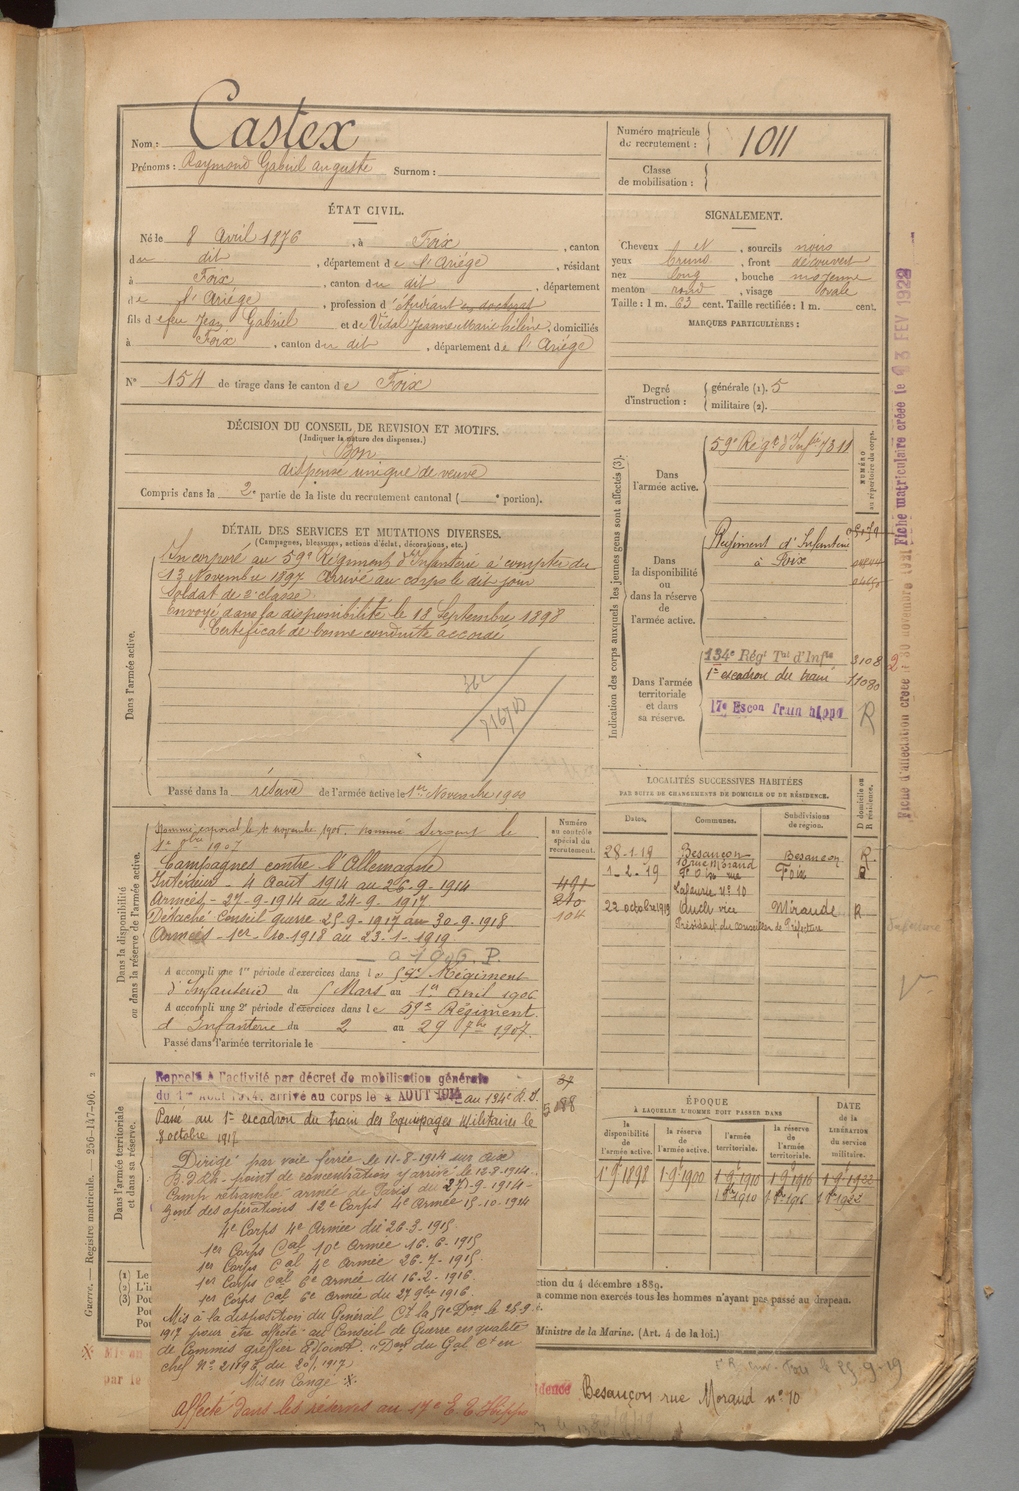 Nom : Castex
Prénoms : Raymond Gabriel Auguste Surnom :
Numéro matricule de recrutement : 1011
Classe de mobilisation :
ÉTAT CIVIL.
Né le 8 Avril 1876, à Foix, canton
du dit, département de l'Ariége, résidant
à Foix, canton du dit, département
de l'Ariége, profession d'étudiant en doctorat
fils de feu Jean Gabriel et de Vidal Jeanne Marie hélène, domiciliés
à Foix, canton du dit, département de l'Ariége
N° 154 de tirage dans le canton de Foix
SIGNALEMENT.
Cheveux et N, sourcils noirs
yeux bruns, front découvert
nez long, bouche moyenne
menton rond, visage ovale
Taille : 1 m. 63 cent. Taille rectifiée : 1 m. cent.
MARQUES PARTICULIÈRES :
Degré d'instruction : générale (1). 5
militaire (2).
DÉCISION DU CONSEIL DE REVISION ET MOTIFS.
(Indiquer la nature des dispenses.)
Bon
dispense unique de veuve
Compris dans la 2e partie de la liste du recrutement cantonal ( e portion).
DÉTAIL DES SERVICES ET MUTATIONS DIVERSES.
(Campagnes, blessures, actions d'éclat, décorations, etc.)
Dans l'armée active.
Incorporé au 59e Régiment d'Infanterie à compter du
13 Novembre 1897 Arrivé au corps le dit jour
Soldat de 2e classe
Envoyé dans la disponibilité le 18 Septembre 1898
Certificat de bonne conduite accordé
Passé dans la réserve de l'armée active le 1er Novembre 1900
Indication des corps auxquels les jeunes gens sont affectés (3).
NUMÉRO au répertoire du corps.
Dans l'armée active.
59e Régt d'Infie 7311
Dans la disponibilité ou dans la réserve de l'armée active.
Régiment d'Infanterie
à Foix
Dans l'armée territoriale et dans sa réserve.
134e Régt Tal d'Infie 3108
1er escadron du train 11080
17e Escon train hippo R
LOCALITÉS SUCCESSIVES HABITÉES
PAR SUITE DE CHANGEMENTS DE DOMICILE OU DE RÉSIDENCE.
Dates. Communes. Subdivisions de région. D domicile ou R résidence.
28-1-19 Besançon Besançon R.
13 rue Morand
1-2-19 Foix rue Foix R
Lafaurie N° 10
22 octobre 1919 Auch vice Mirande R
Président du conseiller de Préfecture
Dans la disponibilité ou dans la réserve de l'armée active.
Numéro au contrôle spécial du recrutement.
Nommé caporal le 1er novembre 1905. nommé sergent le
1907
Campagnes contre l'Allemagne
Intérieur - 4 Août 1914 au 26-9-1914 491
Armées - 27-9-1914 au 24-9-1917 210
Détaché Conseil guerre 25-9-1917 au 30-9-1918 104
Armées - 1er-10-1918 au 23-1-1919
a 1906. P.
A accompli une 1re période d'exercices dans le 59e Régiment
d'Infanterie du 5 Mars au 1er Avril 1906
A accompli une 2e période d'exercices dans le 59e Régiment
d'Infanterie du 2 au 29 7bre 1907.
Passé dans l'armée territoriale le
Dans l'armée territoriale et dans sa réserve.
Rappelé à l'activité par décret de mobilisation générale
du 1er Août 1914. arrivé au corps le 4 AOUT 1914 au 134e R.I.
Passé au 1er escadron du train des Equipages Militaires le
8 octobre 1917
Dirigé par voie ferrée le 11-8-1914 sur Aix
point de concentration y arrivé le 12-8-1914.
Camp retranché armée de Paris du 27-9-1914 -
Zone des opérations 12e Corps 4e Armée 15-10-1914
4e Corps 4e Armée du 26-3-1915.
1er Corps Cal 10e Armée 16-6-1915
1er Corps Cal 4e Armée 26-7-1915
1er Corps Cal 6e Armée du 16-2-1916.
1er Corps Cal 6e Armée du 27 9bre 1916.
Mis à la disposition du Général Ct la Don le 25-9-
1917 pour être affecté au Conseil de Guerre en qualité
de Commis greffier Adjoint. Don du Gal Ct en
chef N° 21193 du 20/1/1917
Mis en Congé ※
affecté dans les réserves au 17e E. T. Hippo
ÉPOQUE
À LAQUELLE L'HOMME DOIT PASSER DANS
la disponibilité de l'armée active. la réserve de l'armée active. l'armée territoriale. la réserve de l'armée territoriale.
DATE de la LIBÉRATION du service militaire.
1er 9bre 1898 1er 9bre 1900 1er 9bre 1910 1er 9bre 1916 1er 9bre 1922
(1) Le
(2) L'in
(3) Pou
Pou
Pou
ction du 4 décembre 1889.
a comme non exercés tous les hommes n'ayant pas passé au drapeau.
Ministre de la Marine. (Art. 4 de la loi.)
dence Besançon rue Morand n° 10
par le
Guerre. — Registre matricule. — 256-147-96.
Fiche matriculaire créée le 13 FEV 1922
Fiche d'affectation créée le 30 novembre 1921